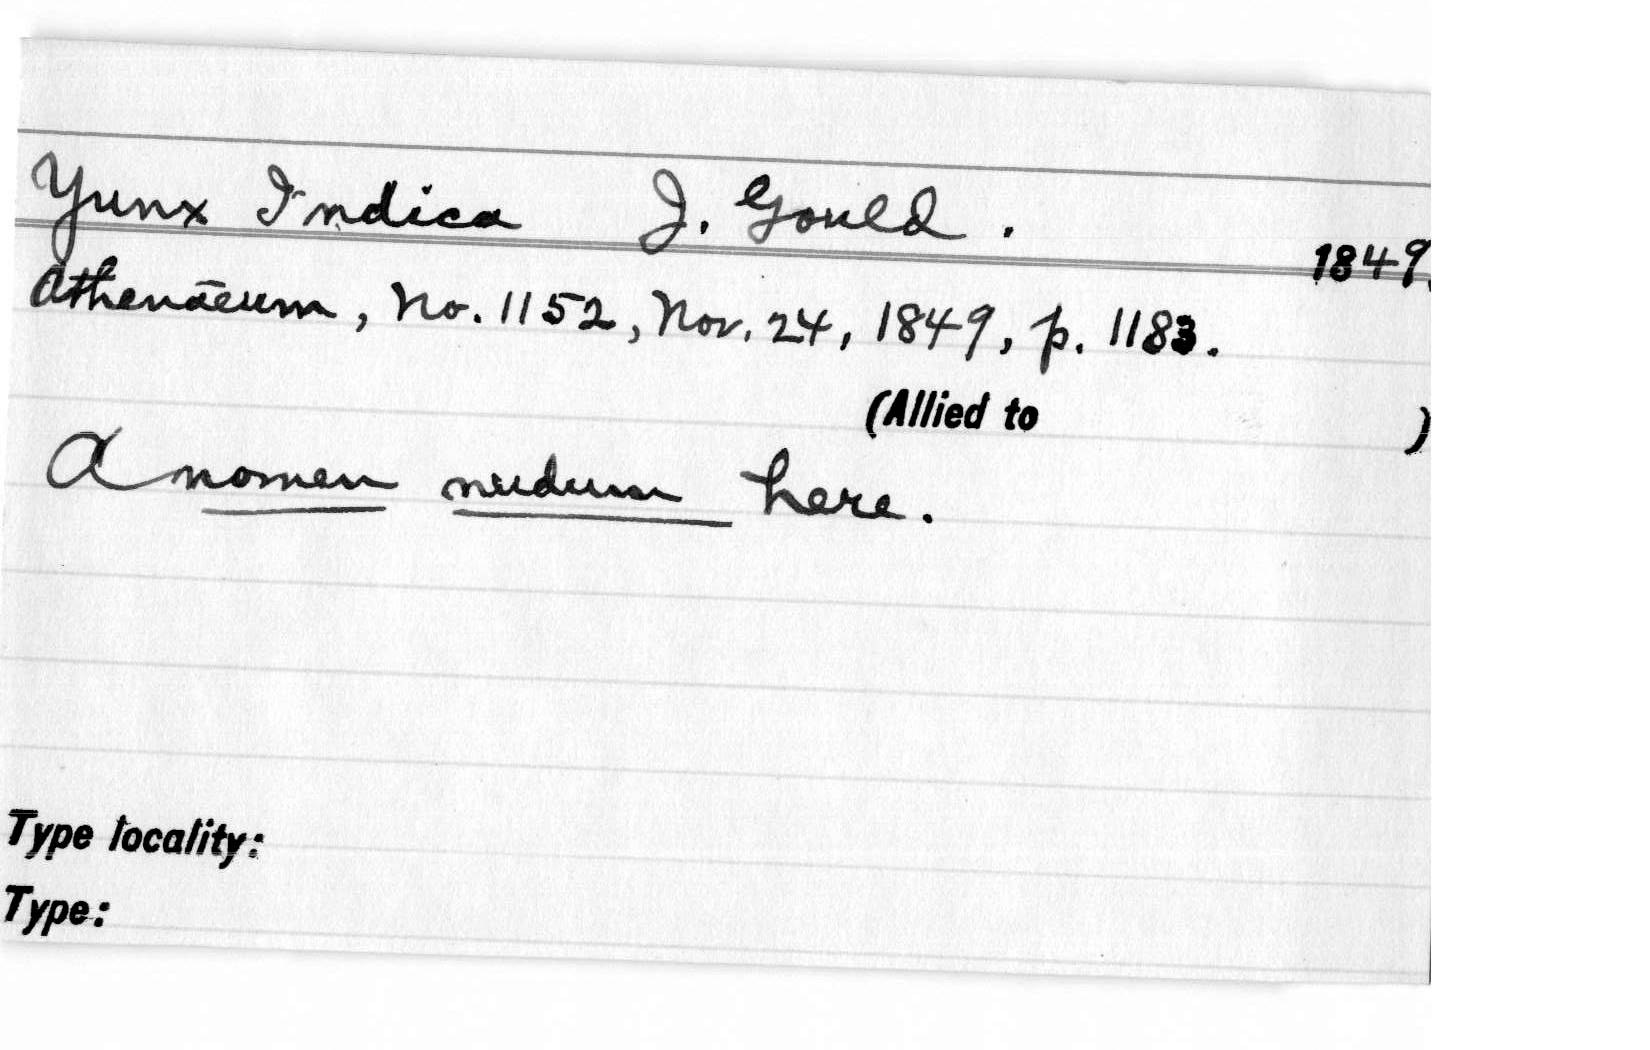 Yunx Indica J. Gould.
1849.
Athenaeum, No. 1152, Nov. 24, 1849, p. 1183.
(Allied to )
A nomen nudum here.
Type locality:
Type: